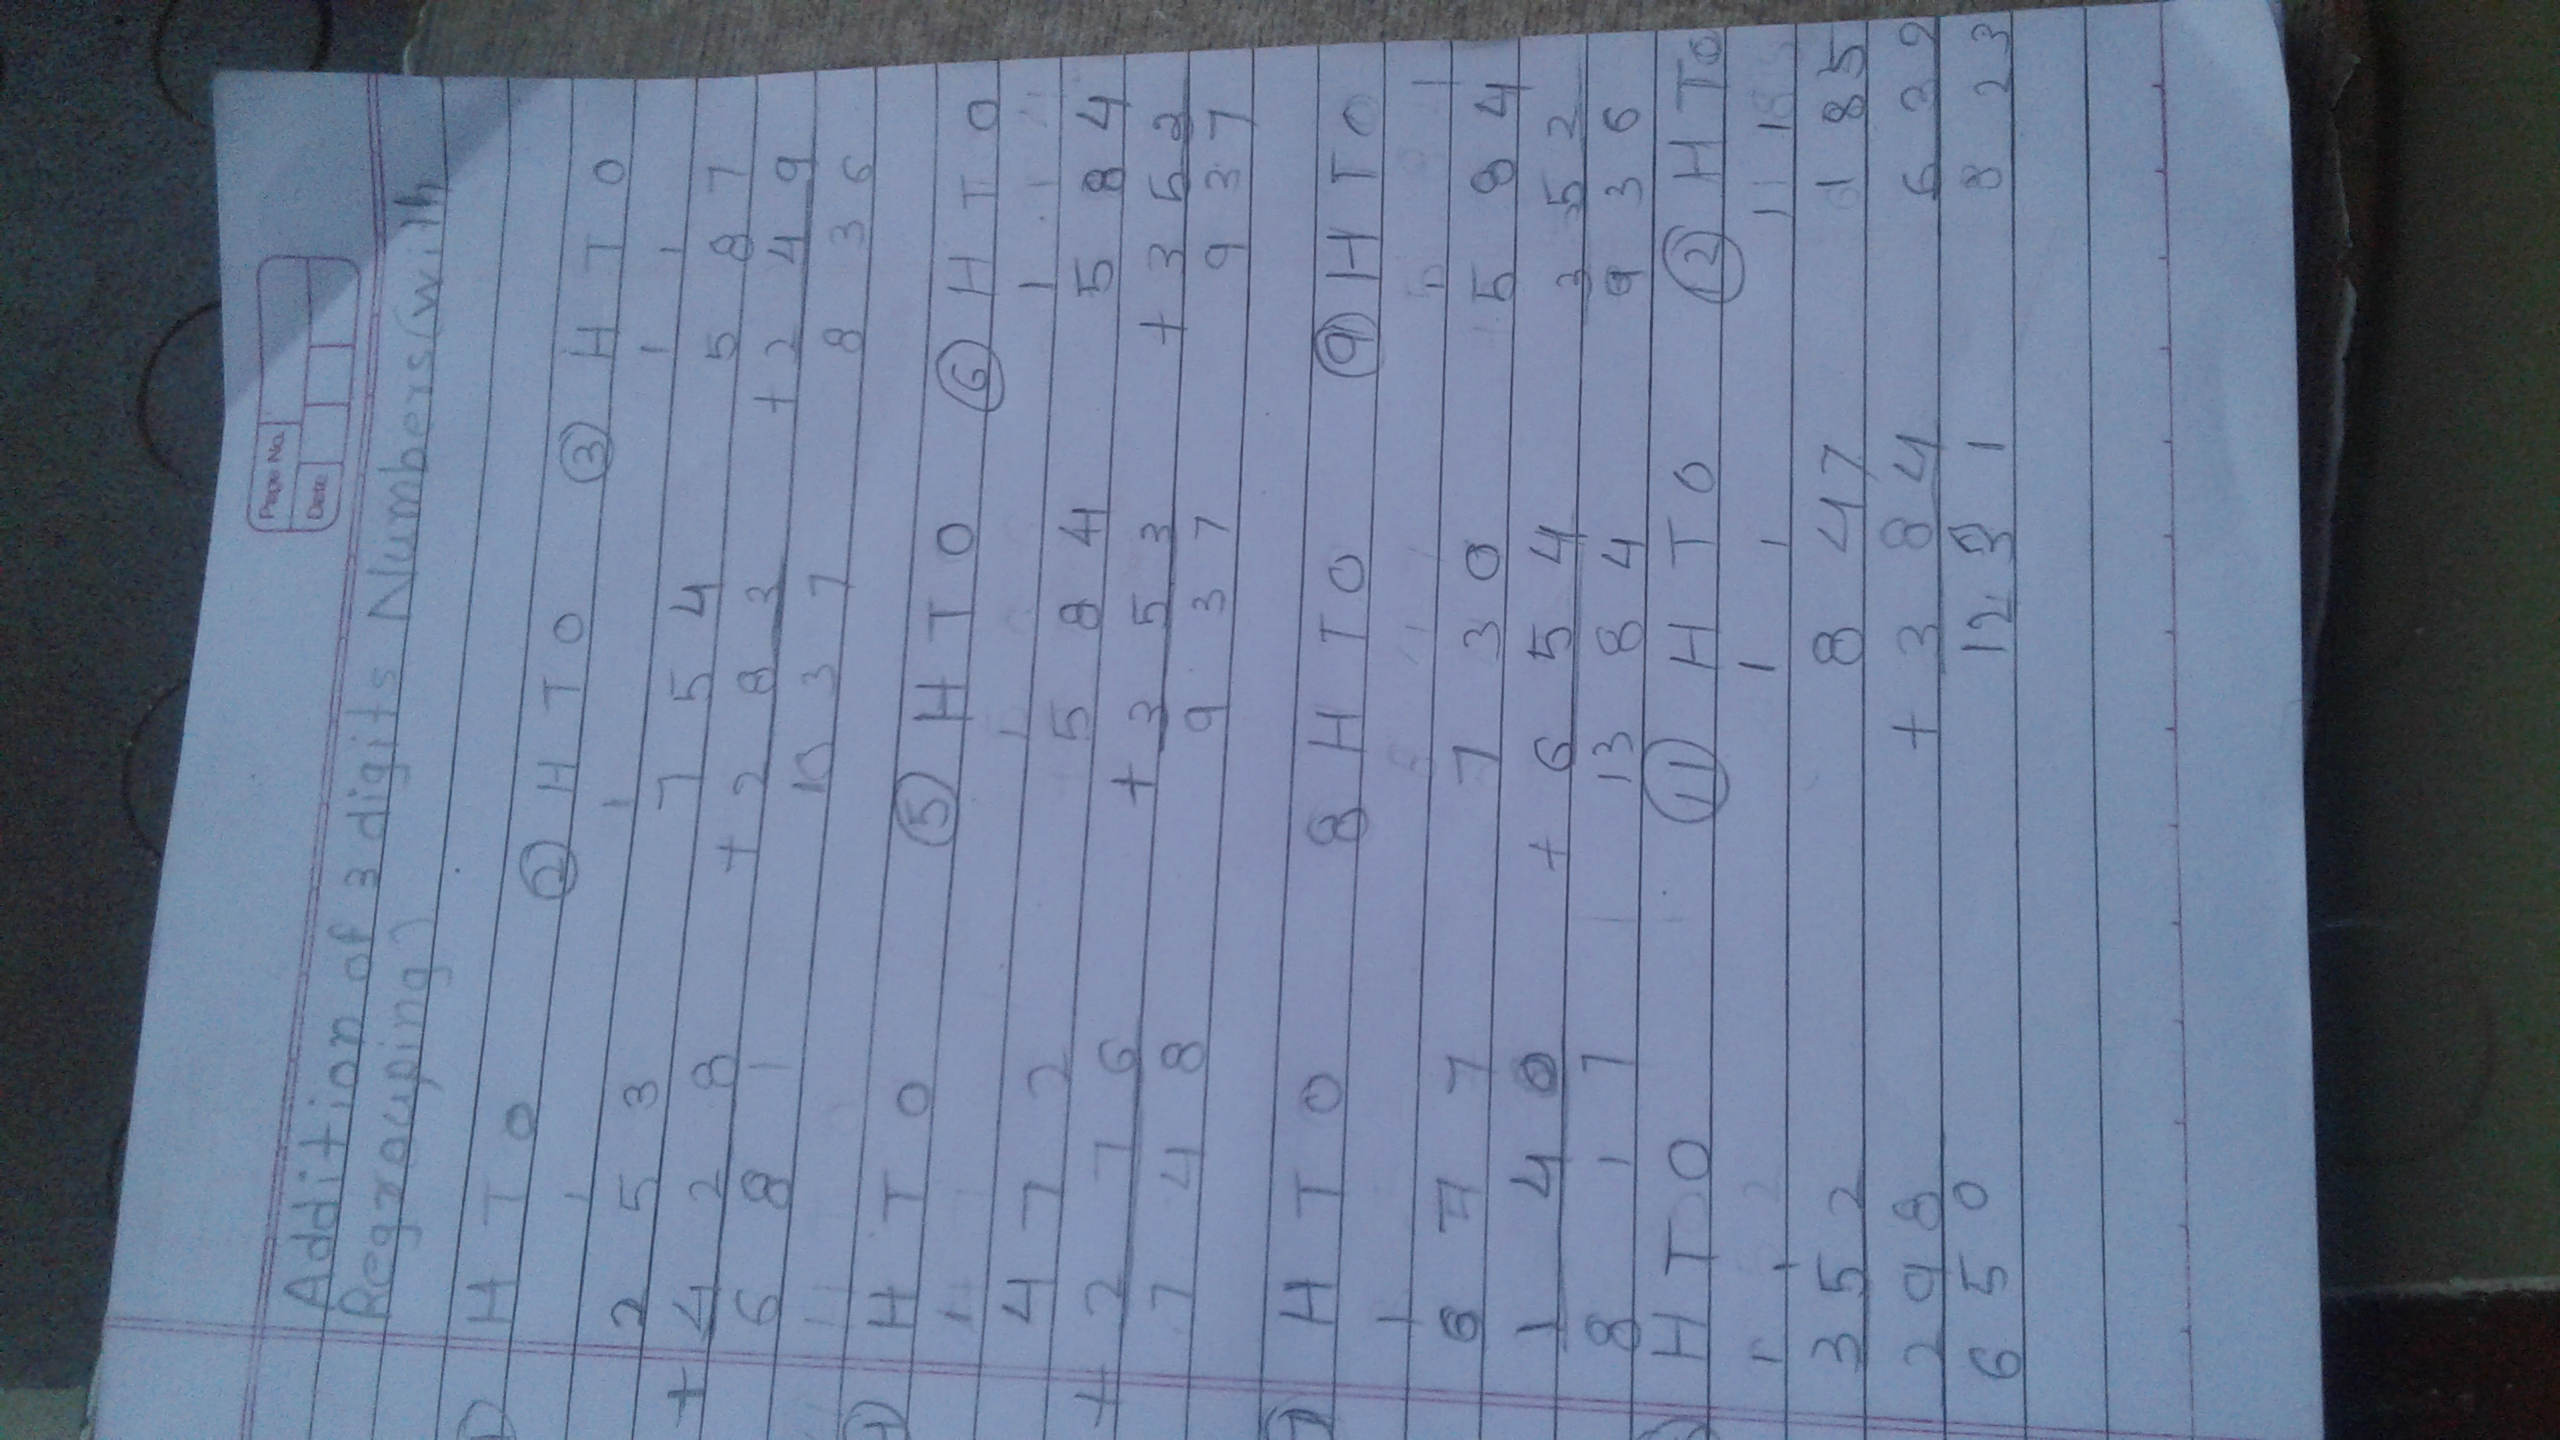 Page No.
Date
Addition of 3 digits Numbers (with
Regrouping)
H T O ② H T O ③ H T O
1 1 1 1
2 5 3 7 5 4 5 8 7
+ 4 2 8 + 2 8 3 + 2 4 9
6 8 1 10 3 7 8 3 6
H T O ⑤ H T O ⑥ H T O
1 1 1
4 7 2 5 8 4 5 8 4
+ 2 7 6 + 3 5 3 + 3 5 2
7 4 8 9 3 7 9 3 7
H T O 8 H T O ⑨ H T O
1 1
6 7 7 7 3 0 5 8 4
1 4 0 + 6 5 4 3 5 2
8 1 7 13 8 4 9 3 6
H T O ⑪ H T O ⑫ H T O
1 1 1 1 1 1
3 5 2 8 4 7 1 8 5
2 9 8 + 3 8 4 6 3 9
6 5 0 12 3 1 8 2 3